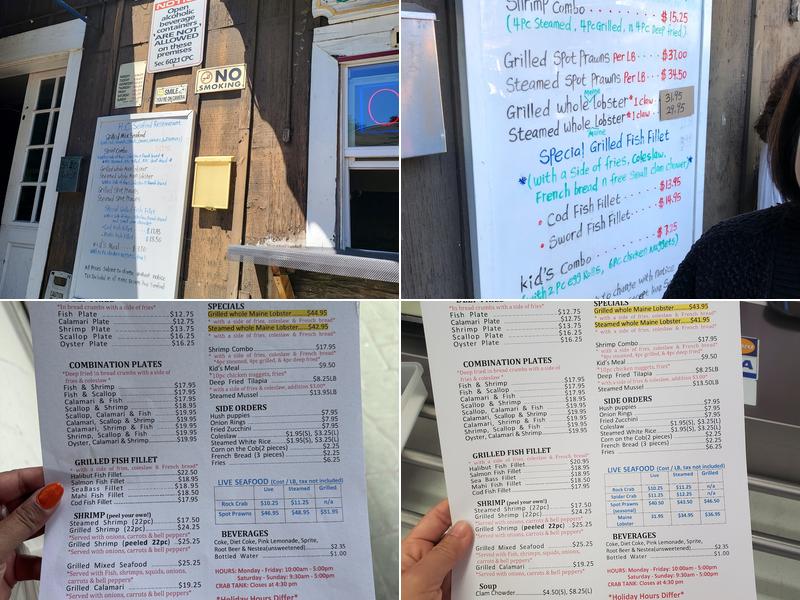 NOTICE
Open
alcoholic
beverage
containers,
ARE NOT
ALLOWED
on these
premises
Sec 6021 CPC
NO
SMOKING
SMILE
YOU'RE ON CAMERA
Grilled Mix Seafood
Shrimp Combo
Kid's Meal
All Prices Subject to change without notice
Shrimp Combo $15.25
(4pc Steamed, 4pc Grilled, n 4pc Deep fried)
Grilled Spot Prawns Per LB $37.00
Steamed Spot Prawns Per LB $34.50
Maine
Grilled whole Lobster *1 claw 31.95
Steamed whole Lobster *1 claw 29.95
Maine
Special Grilled Fish Fillet
*(with a side of fries, Coleslaw,
French bread n free small clam chowder)*
• Cod Fish Fillet $13.95
• Sword Fish Fillet $14.95
Kid's Combo $7.25
(with 2 Pc egg Rolls, 4pc chicken nuggets)
to change with notice
*In bread crumbs with a side of fries*
Fish Plate $12.75
Calamari Plate $12.75
Shrimp Plate $13.75
Scallop Plate $16.25
Oyster Plate $16.25
COMBINATION PLATES
*Deep fried in bread crumbs with a side of
fries & coleslaw *
Fish & Shrimp $17.95
Fish & Scallop $17.95
Calamari & Fish $17.95
Scallop & Shrimp $18.95
Scallop, Calamari & Fish $19.95
Calamari, Scallop & Shrimp $19.95
Calamari, Shrimp & Fish $19.95
Shrimp, Scallop & Fish $19.95
Oyster, Calamari & Shrimp $19.95
GRILLED FISH FILLET
*With a side of fries, coleslaw & French bread*
Halibut Fish Fillet $22.50
Salmon Fish Fillet $18.95
SeaBass Fillet $18.95
Mahi Fish Fillet $18.50
Cod Fish Fillet $17.95
SHRIMP (peel your own!)
Steamed Shrimp (22pc) $17.50
Grilled Shrimp (22pc) $24.25
*Served with onions, carrots & bell peppers*
Grilled Shrimp (peeled 22pc) $25.25
*Served with onions, carrots & bell peppers*
Grilled Mixed Seafood $25.25
*Served with Fish, shrimps, squids, onions,
carrots & bell peppers*
Grilled Calamari $19.25
*Served with onions, carrots & bell peppers*
SPECIALS
Grilled whole Maine Lobster $44.95
* with a side of fries, coleslaw & French bread*
Steamed whole Maine Lobster $42.95
Shrimp Combo $17.95
* with a side of fries, coleslaw & French bread*
*4pc steamed, 4pc grill, & 4pc deep fried*
Kid's Meal $9.50
*10pc chicken nuggets, fries*
Deep Fried Tilapia $8.25LB
*with a side of fries & coleslaw, addition $3.00*
Steamed Mussel $13.95LB
SIDE ORDERS
Hush puppies $7.95
Onion Rings $7.95
Fried Zucchini $7.95
Coleslaw $1.95(S), $3.25(L)
Steamed White Rice $1.95(S), $3.25(L)
Corn on the Cob(2 pieces) $2.25
French Bread (3 pieces) $2.25
Fries $6.25
LIVE SEAFOOD (Cost / LB, tax not included)
Live Steamed Grilled
Rock Crab $10.25 $11.25 n/a
Spot Prawns $46.95 $48.95 $51.95
BEVERAGES
Coke, Diet Coke, Pink Lemonade, Sprite,
Root Beer & Nestea(unsweetened) $2.35
Bottled Water $1.00
HOURS: Monday - Friday: 10:00am - 5:00pm
Saturday - Sunday: 9:30am - 5:00pm
CRAB TANK: Closes at 4:30 pm
*Holiday Hours Differ*
*In bread crumbs with a side of fries*
Fish Plate $12.75
Calamari Plate $12.75
Shrimp Plate $13.75
Scallop Plate $16.25
Oyster Plate $16.25
COMBINATION PLATES
*Deep fried in bread crumbs with a side of
fries & coleslaw *
Fish & Shrimp $17.95
Fish & Scallop $17.95
Calamari & Fish $17.95
Scallop & Shrimp $18.95
Scallop, Calamari & Fish $19.95
Calamari, Scallop & Shrimp $19.95
Calamari, Shrimp & Fish $19.95
Shrimp, Scallop & Fish $19.95
Oyster, Calamari & Shrimp $19.95
GRILLED FISH FILLET
*With a side of fries, coleslaw & French bread*
Halibut Fish Fillet $20.95
Salmon Fish Fillet $18.95
SeaBass Fillet $18.95
Mahi Fish Fillet $18.50
Cod Fish Fillet $17.95
SHRIMP (peel your own!)
Steamed Shrimp (22pc) $17.50
Grilled Shrimp (22pc) $24.25
*Served with onions, carrots & bell peppers*
Grilled Shrimp (peeled 22pc) $25.25
*Served with onions, carrots & bell peppers*
Grilled Mixed Seafood $25.25
*Served with Fish, shrimps, squids, onions,
carrots & bell peppers*
Grilled Calamari $19.25
*Served with onions, carrots & bell peppers*
Soup
Clam Chowder $4.50(S), $8.25(L)
SPECIALS
Grilled whole Maine Lobster $43.95
* with a side of fries, coleslaw & French bread*
Steamed whole Maine Lobster $41.95
Shrimp Combo $17.95
* with a side of fries, coleslaw & French bread*
*4pc steamed, 4pc grill, & 4pc deep fried*
Kid's Meal $9.50
*10pc chicken nuggets, fries*
Deep Fried Tilapia $8.25LB
*with a side of fries & coleslaw, addition $3.00*
Steamed Mussel $13.50LB
SIDE ORDERS
Hush puppies $7.95
Onion Rings $7.95
Fried Zucchini $7.95
Coleslaw $1.95(S), $3.25(L)
Steamed White Rice $1.95(S), $3.25(L)
Corn on the Cob(2 pieces) $2.25
French Bread (3 pieces) $2.25
Fries $6.25
LIVE SEAFOOD (Cost / LB, tax not included)
Live Steamed Grilled
Rock Crab $10.25 $11.25 n/a
Spider Crab $10.25 $11.25 n/a
Spot Prawns (seasonal) $40.50 $43.50 $46.50
Maine Lobster 31.95 $34.95 $36.95
BEVERAGES
Coke, Diet Coke, Pink Lemonade, Sprite,
Root Beer & Nestea(unsweetened) $2.35
Bottled Water $1.00
HOURS: Monday - Friday: 10:00am - 5:00pm
Saturday - Sunday: 9:30am - 5:00pm
CRAB TANK: Closes at 4:30 pm
*Holiday Hours Differ*